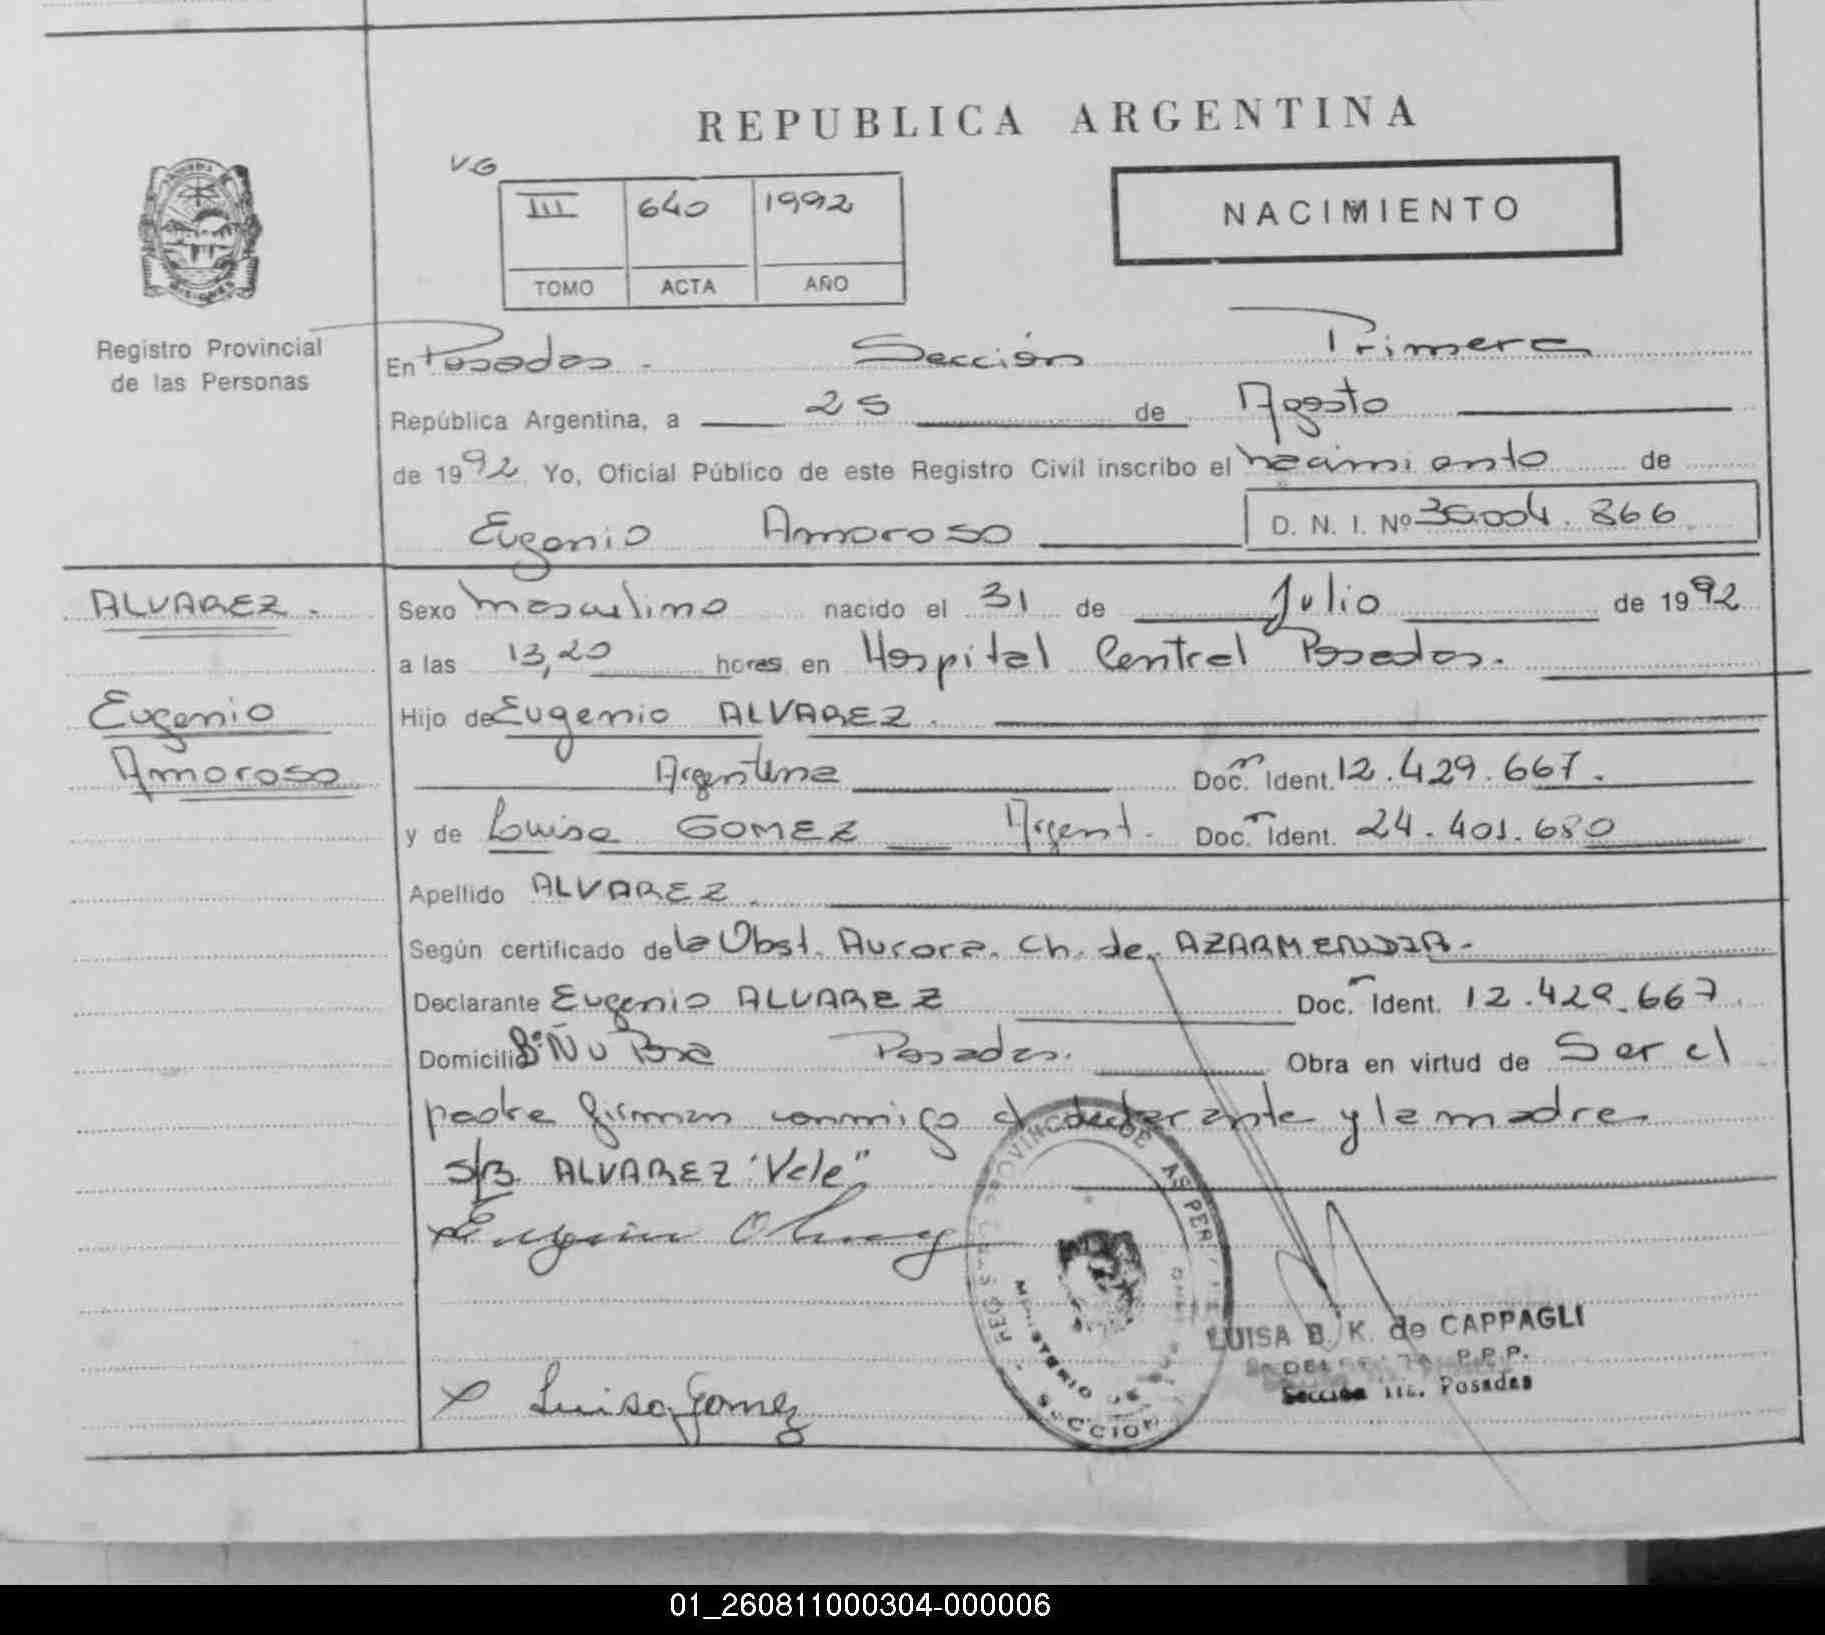 REPUBLICA ARGENTINA
VG
III 640 1992
TOMO ACTA AÑO
NACIMIENTO
Registro Provincial
de las Personas
En Posadas - Sección Primera
República Argentina, a 25 de Agosto
de 1992 Yo, Oficial Público de este Registro Civil inscribo el nacimiento de
Eugenio Amoroso D. N. I. Nº 36.004.866
ALVAREZ.
Eugenio
Amoroso
Sexo masculino nacido el 31 de Julio de 1992
a las 13,20 horas en Hospital Central Posadas.
Hijo de Eugenio ALVAREZ.
Argentina Doc. Ident. 12.429.667.
y de Luisa GOMEZ Argent. Doc. Ident. 24.401.680
Apellido ALVAREZ.
Según certificado de la Obst. Aurora. Ch. de. AZARMENDIA.
Declarante Eugenio ALVAREZ Doc. Ident. 12.429.667
Domicilio Bº Ñu Pora Posadas. Obra en virtud de Ser el
padre firman conmigo el declarante y la madre.
s/B ALVAREZ "Vale"
x Eugenio Alvarez
PROVINCIA DE
MINISTERIO DE
SECCION
LUISA B. K. de CAPPAGLI
Posadas
x Luisa Gomez
01_260811000304-000006